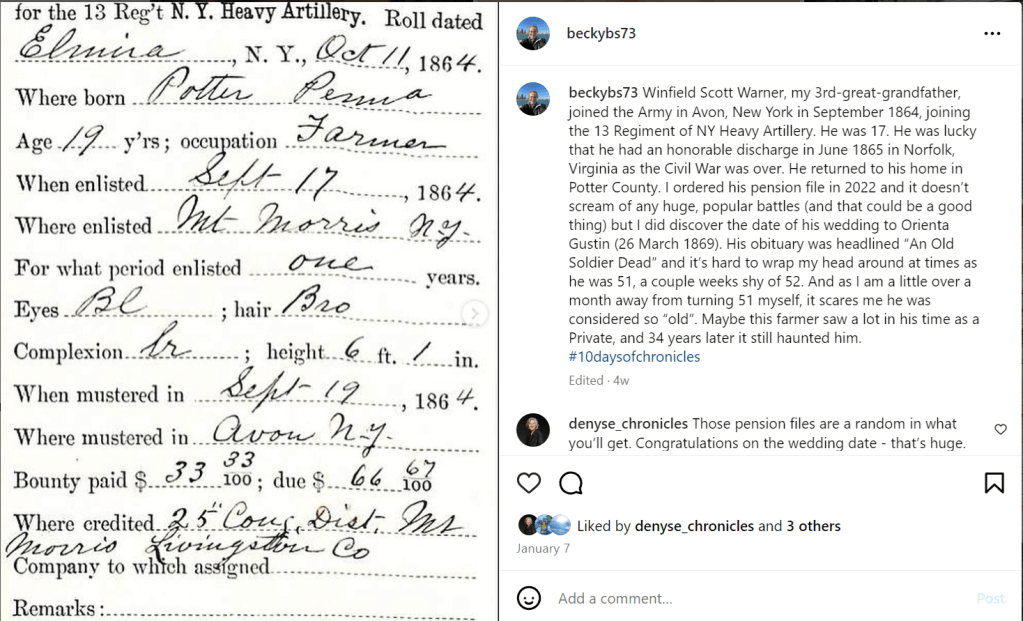 for the 13 Reg't N. Y. Heavy Artillery. Roll dated
Elmira, N. Y., Oct 11, 1864.
Where born Potter Penna
Age 19 y'rs; occupation Farmer
When enlisted Sept 17, 1864.
Where enlisted Mt Morris N.Y.
For what period enlisted one years.
Eyes Bl; hair Bro
Complexion Lr; height 6 ft. 1 in.
When mustered in Sept 19, 1864.
Where mustered in Avon N.Y.
Bounty paid $ 33 33/100; due $ 66 67/100
Where credited 25" Cong. Dist. Mt
Morris Livingston Co
Company to which assigned
Remarks:
beckybs73
beckybs73 Winfield Scott Warner, my 3rd-great-grandfather,
joined the Army in Avon, New York in September 1864, joining
the 13 Regiment of NY Heavy Artillery. He was 17. He was lucky
that he had an honorable discharge in June 1865 in Norfolk,
Virginia as the Civil War was over. He returned to his home in
Potter County. I ordered his pension file in 2022 and it doesn't
scream of any huge, popular battles (and that could be a good
thing) but I did discover the date of his wedding to Orienta
Gustin (26 March 1869). His obituary was headlined "An Old
Soldier Dead" and it's hard to wrap my head around at times as
he was 51, a couple weeks shy of 52. And as I am a little over a
month away from turning 51 myself, it scares me he was
considered so "old". Maybe this farmer saw a lot in his time as a
Private, and 34 years later it still haunted him.
#10daysofchronicles
Edited · 4w
denyse_chronicles Those pension files are a random in what
you'll get. Congratulations on the wedding date - that's huge.
Liked by denyse_chronicles and 3 others
January 7
Add a comment...
Post